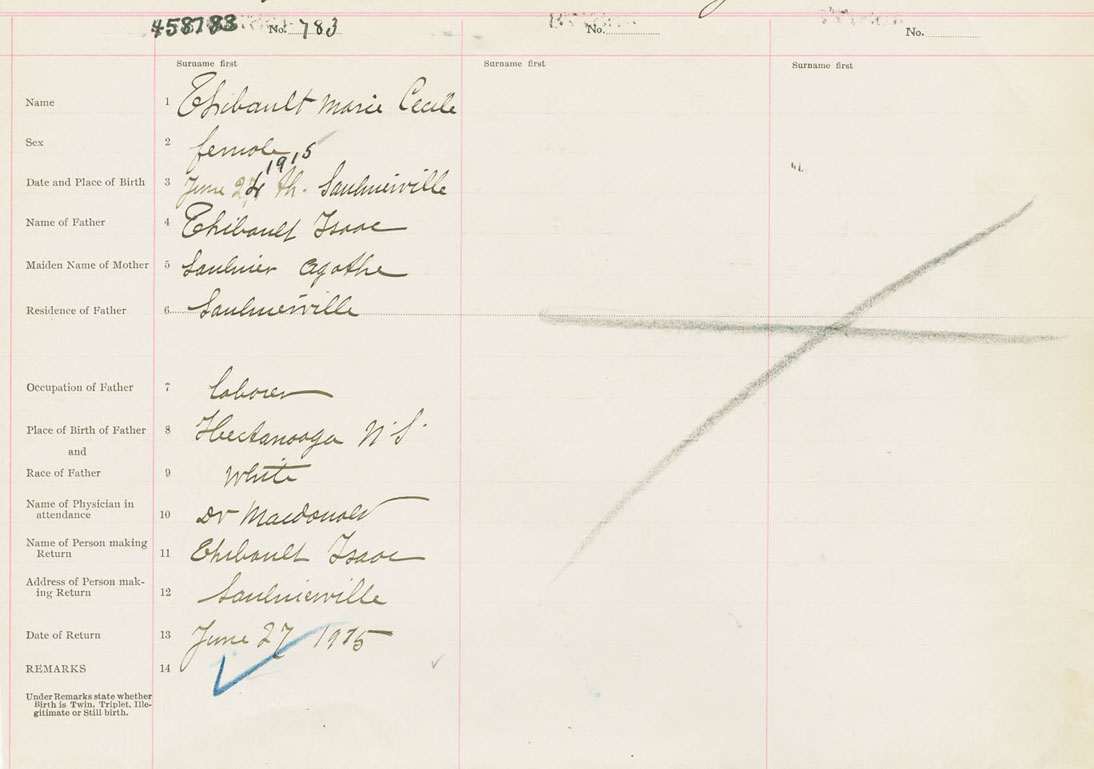 458783 No. 783 No. No.
Surname first Surname first Surname first
Name 1 Thibault Marie Cecile
Sex 2 female
1915
Date and Place of Birth 3 June 24 th. Saulnierville
Name of Father 4 Thibault Isaac
Maiden Name of Mother 5 Saulnier Agathe
Residence of Father 6 Saulnierville
Occupation of Father 7 laborer
Place of Birth of Father 8 Hectanooga N.S.
and
Race of Father 9 White
Name of Physician in
attendance 10 Dr Macdonald
Name of Person making
Return 11 Thibault Isaac
Address of Person mak-
ing Return 12 Saulnierville
Date of Return 13 June 27 1915
REMARKS 14
Under Remarks state whether
Birth is Twin, Triplet, Ille-
gitimate or Still birth.